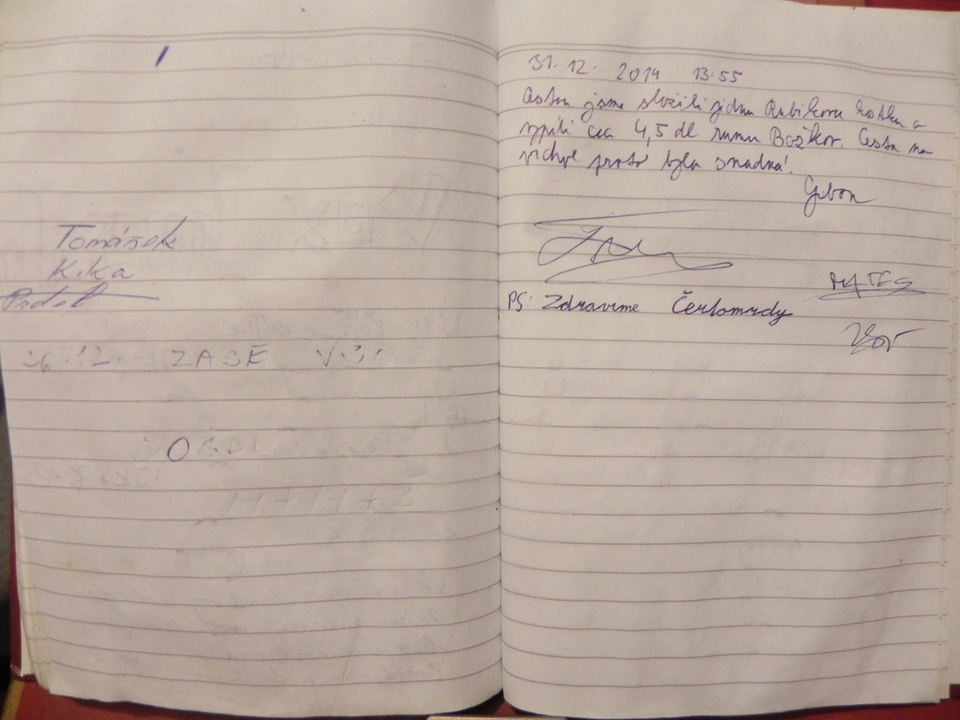 Tomášek
Kika
26.12. ZASE
31.12. 2014 13:55
Cestou jsme složili jednu Rubikovu kostku a
vypili cca 4,5 dl rumu Božkov. Cesta na
vrchol proto byla snadná!
MATES
PS: Zdravíme Čertomrdy